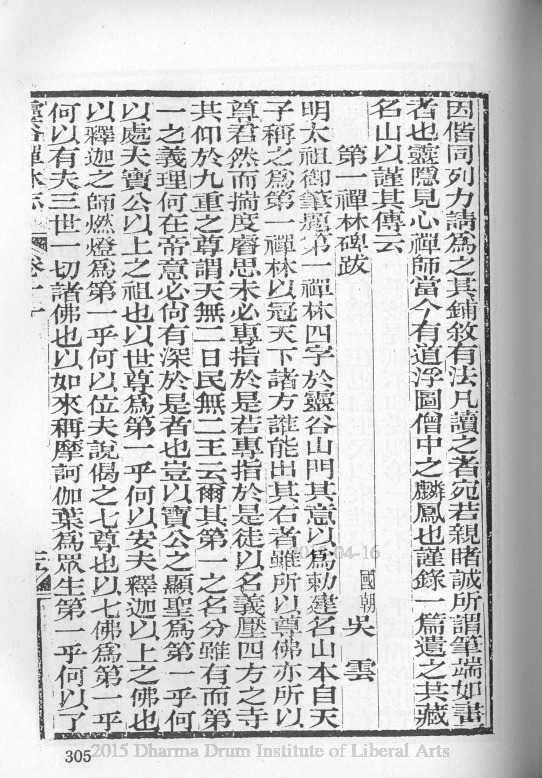 因偕同列力請為之其鋪敘有法凡讀之者宛若親睹誠所謂筆端如畫
者也靈隱見心禪師當今有道浮圖僧中之麟鳳也謹錄一篇遺之共藏
名山以謹其傳云
第一禪林碑跋
國朝 吳雲
明太祖御筆題第一禪林四字於靈谷山門其意以為勅建名山本自天
子稱之為第一禪林以冠天下諸方誰能出其右者雖所以尊佛亦所以
尊君然而揣度睿思未必專指於是若專指於是徒以名義壓四方之寺
共仰於九重之尊謂天無二日民無二王云爾其第一之名分雖有而第
一之義理何在帝意必尚有深於是者也豈以寶公之顯聖為第一乎何
以處夫寶公以上之祖也以世尊為第一乎何以安夫釋迦以上之佛也
以釋迦之師燃燈為第一乎何以位夫說偈之七尊也以七佛為第一乎
何以有夫三世一切諸佛也以如來稱摩訶伽葉為眾生第一乎何以了
靈谷禪林志 卷十
305
2015 Dharma Drum Institute of Liberal Arts